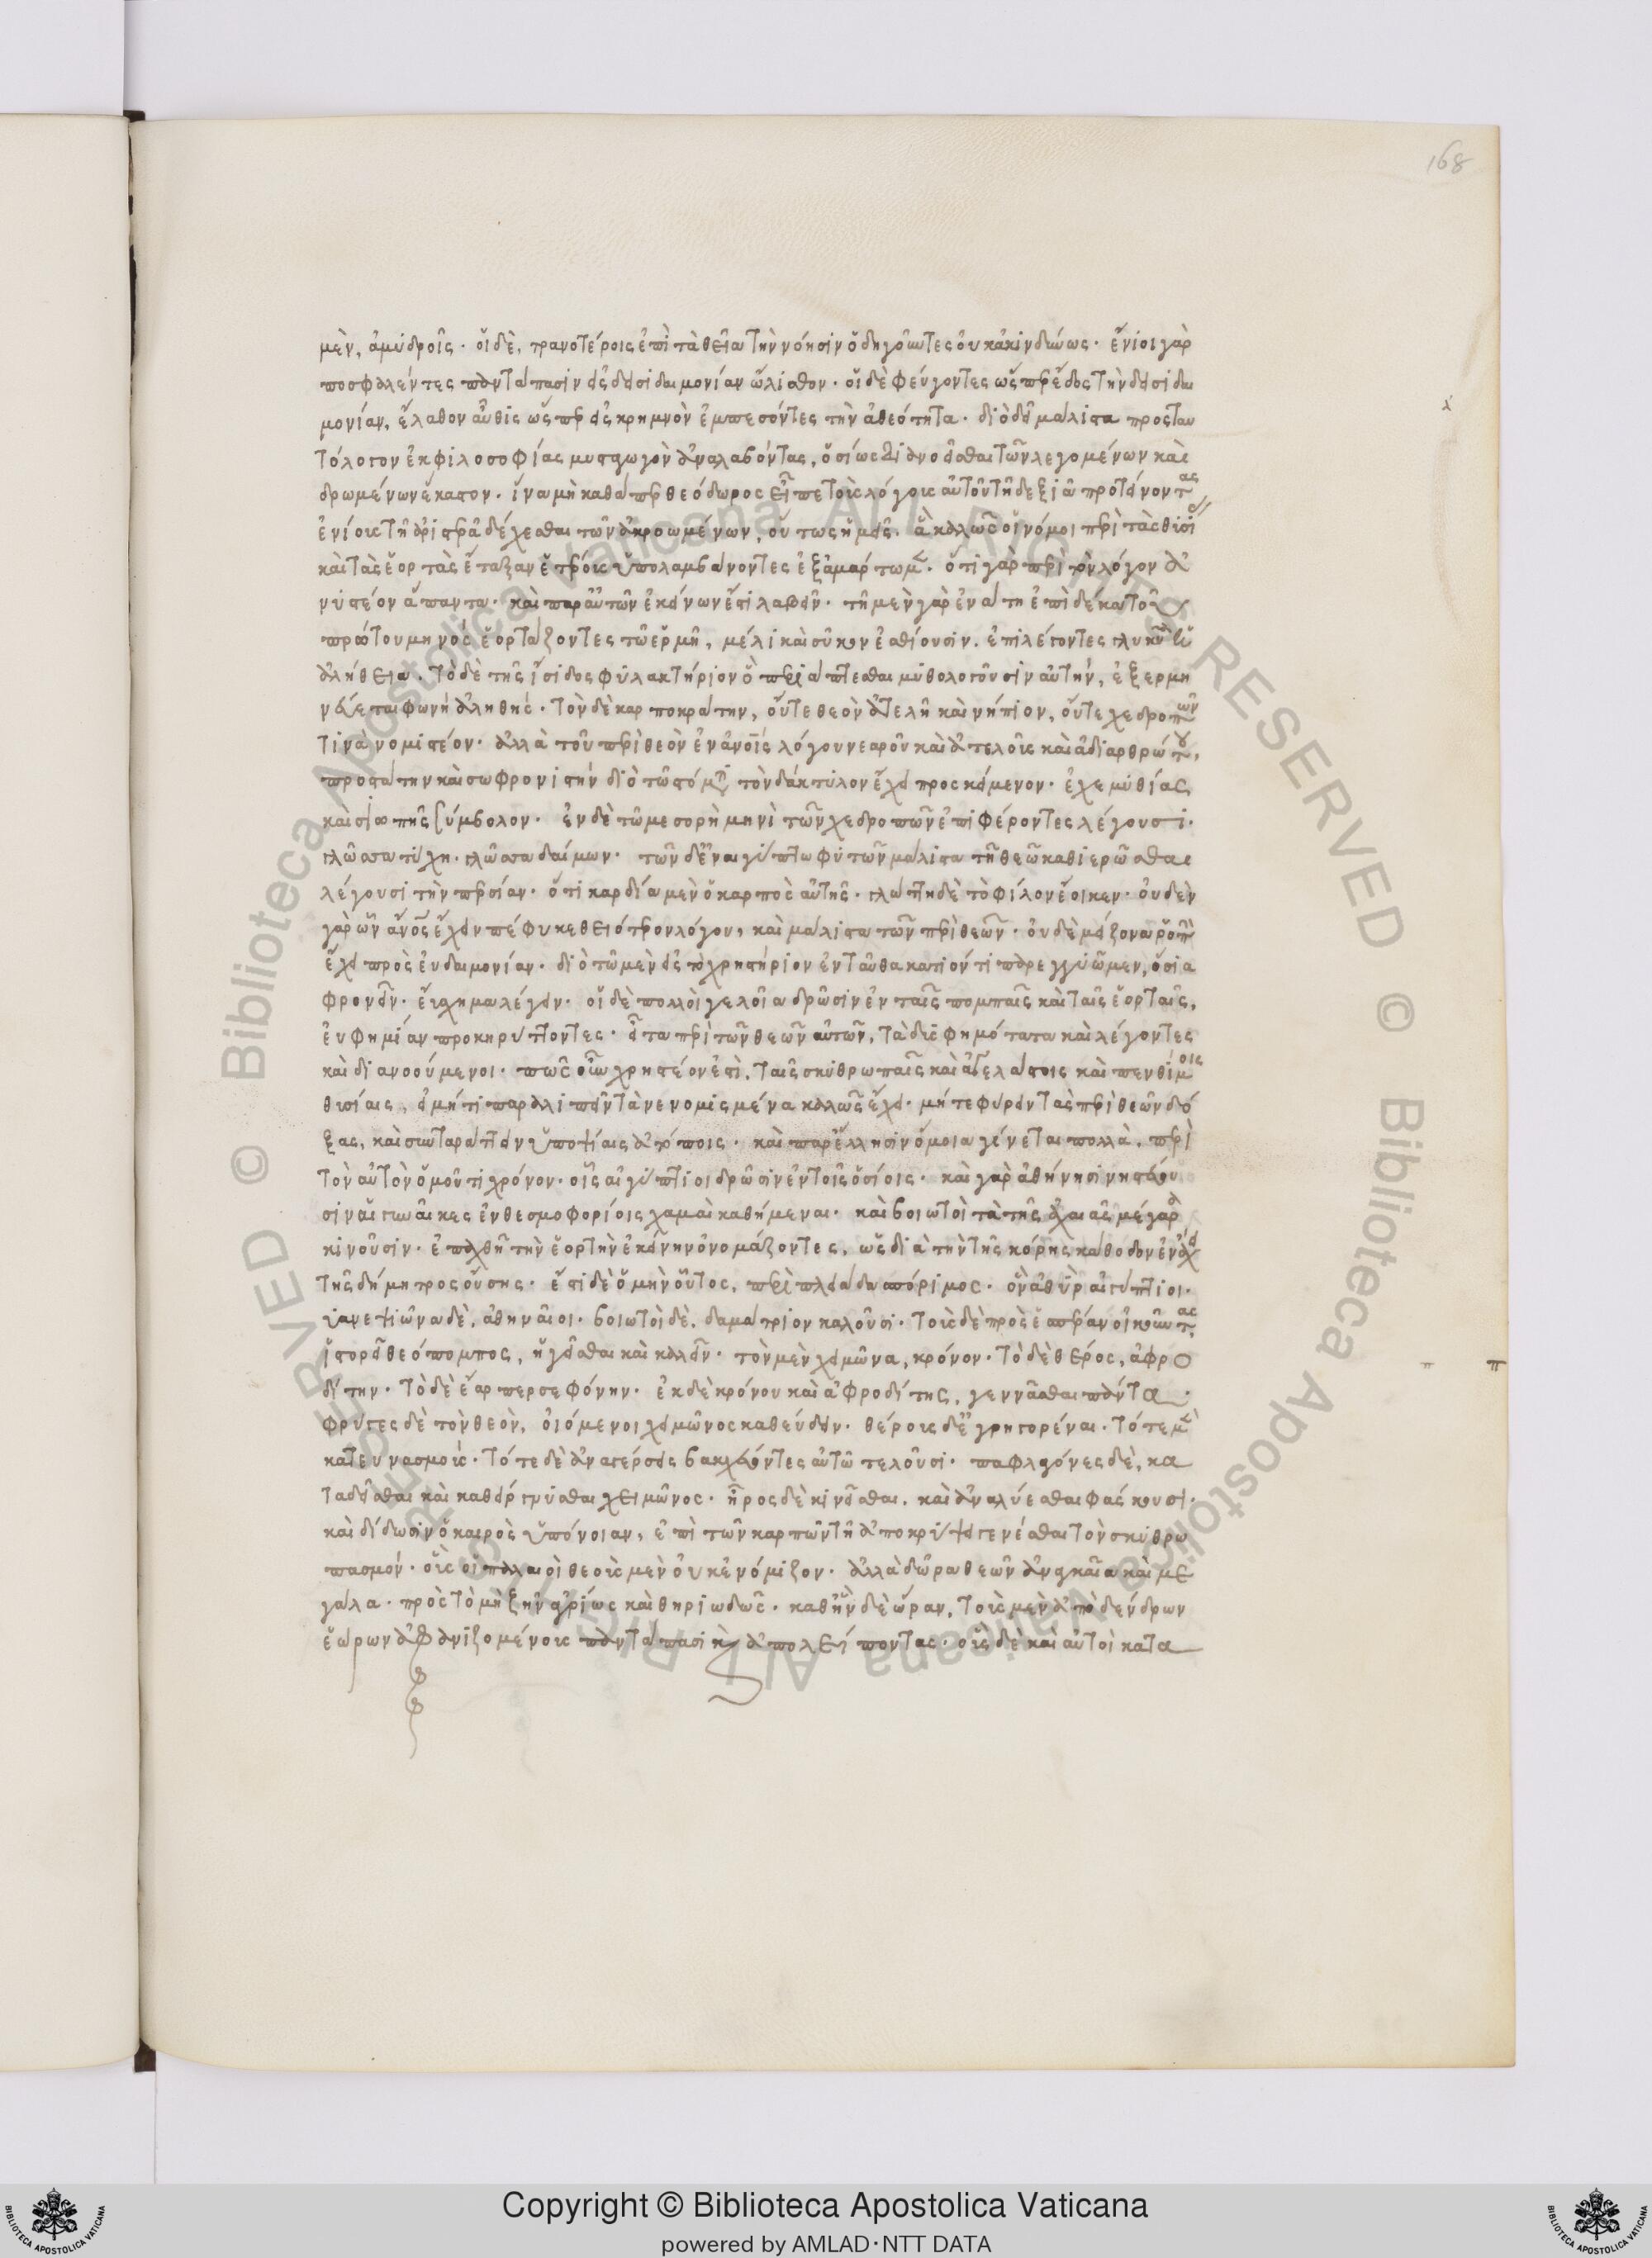 168
μὲν, ἀμυδροῖς· οἱ δὲ, τρανοτέροις ἐπὶ τὰ θεῖα τὴν νόησιν ὁδηγοῦντες οὐκ ἀκινδύνως· ἔνιοι γὰρ
ποσφαλέντες παντάπασιν εἰς δεισιδαιμονίαν ὤλισθον· οἱ δὲ φεύγοντες ὥσπερ ἕλος τὴν δεισιδαι
μονίαν, ἔλαθον αὖθις ὥσπερ εἰς κρημνὸν ἐμπεσόντες τὴν ἀθεότητα· διὸ δεῖ μάλιστα πρὸς ταῦ
τα λόγον ἐκ φιλοσοφίας μυσταγωγὸν ἀναλαβόντας, ὁσίως διανοεῖσθαι τῶν λεγομένων καὶ
δρωμένων ἕκαστον· ἵνα μὴ καθάπερ θεόδωρος εἶπε τοὺς λόγους αὐτοῦ τῇ δεξιᾷ προτείνοντας
ἐνίους τῇ ἀριστερᾷ δέχεσθαι τῶν ἀκροωμένων, οὕτως ἡμεῖς ἃ καλῶς οἱ νόμοι περὶ τὰς θυσί
καὶ τὰς ἑορτὰς ἔταξαν ἑτέρως ὑπολαμβάνοντες ἐξαμάρτωμεν· ὅτι γὰρ περὶ τὸν λόγον ἀ
νυστέον ἅπαντα· καὶ παρ' αὐτῶν ἐκείνων ἔστι λαβεῖν· τῇ μὲν γὰρ ἐνάτῃ ἐπὶ δέκα τοῦ
πρώτου μηνὸς ἑορτάζοντες τῷ ἑρμῇ, μέλι καὶ σῦκον ἐσθίουσιν· ἐπιλέγοντες γλυκὺ ἡ
ἀλήθεια· τὸ δὲ τῆς ἴσιδος φυλακτήριον ὃ περιάπτεσθαι μυθολογοῦσιν αὐτὴν, ἐξερμη
νεύεται φωνὴ ἀληθής· τὸν δὲ καρποκράτην, οὔτε θεὸν ἀτελῆ καὶ νήπιον, οὔτε χεδροπῶν
τινα νομιστέον· ἀλλὰ τοῦ περὶ θεὸν ἐν ἀνοις λόγου νεαροῦ καὶ ἀτελοῦς καὶ ἀδιαρθρώτου,
προστάτην καὶ σωφρονιστὴν διὸ τῷ στόματι τὸν δάκτυλον ἔχει προσκείμενον· ἐχεμυθίας
καὶ σιωπῆς σύμβολον· ἐν δὲ τῷ μεσορὴ μηνὶ τῶν χεδροπῶν ἐπιφέροντες λέγουσι·
γλῶσσα τύχη· γλῶσσα δαίμων· τῶν δ' ἐν αἰγύπτῳ φυτῶν μάλιστα τῇ θεῷ καθιερῶσθαι
λέγουσι τὴν περσέαν· ὅτι καρδία μὲν ὁ καρπὸς αὐτῆς· γλώττῃ δὲ τὸ φύλλον ἔοικεν· οὐδὲν
γὰρ ὧν ἄνος ἔχειν πέφυκε θειότερον λόγου, καὶ μάλιστα τῶν περὶ θεῶν· οὐδὲ μείζονα ῥοπὴν
ἔχει πρὸς εὐδαιμονίαν· διὸ τῷ μὲν εἰς τὸ χρηστήριον ἐνταῦθα κατιόντι παρεγγυῶμεν, ὅσια
φρονεῖν· εὔσχημα λέγειν· οἱ δὲ πολλοὶ γελοῖα δρῶσιν ἐν ταῖς πομπαῖς καὶ ταῖς ἑορταῖς,
εὐφημίαν προκηρύττοντες· εἶτα περὶ τῶν θεῶν αὐτῶν, τὰ δυσφημότατα καὶ λέγοντες
καὶ διανοούμενοι· πῶς οὖν χρηστέον ἐστὶ, ταῖς σκυθρωπαῖς καὶ ἀγελάστοις καὶ πενθίμοις
θυσίαις, εἰ μήτι παραλιπεῖν τὰ νενομισμένα καλῶς ἔχει· μήτε φύρειν τὰς περὶ θεῶν δό
ξας, καὶ συνταράττειν ὑποψίαις ἀτόποις· καὶ παρ' ἕλλησιν ὅμοια γίνεται πολλὰ, περὶ
τὸν αὐτὸν ὁμοῦ τι χρόνον· οἷς αἰγύπτιοι δρῶσιν ἐν τοῖς ὁσίοις· καὶ γὰρ ἀθήνησι νηστεύου
σιν αἱ γυναῖκες ἐν θεσμοφορίοις χαμαὶ καθήμεναι· καὶ βοιωτοὶ τὰ τῆς ἀχαιᾶς μέγαρα
κινοῦσιν· ἐπαχθῆ τὴν ἑορτὴν ἐκείνην ὀνομάζοντες, ὡς διὰ τὴν τῆς κόρης κάθοδον ἐν ἄχει
τῆς δήμητρος οὔσης· ἔστι δὲ ὁ μὴν οὗτος, περὶ πλειάδα σπόριμος· ὃν ἀθὺρ αἰγύπτιοι·
πυανεψιῶνα δὲ, ἀθηναῖοι· βοιωτοὶ δὲ, δαμάτριον καλοῦσι· τοὺς δὲ πρὸς ἑσπέραν οἰκοῦντας
ἱστορεῖ θεόπομπος, ἡγεῖσθαι καὶ καλεῖν· τὸν μὲν χειμῶνα, κρόνον· τὸ δὲ θέρος, ἀφρο
δίτην· τὸ δὲ ἔαρ περσεφόνην· ἐκ δὲ κρόνου καὶ ἀφροδίτης, γεννᾶσθαι πάντα·
φρύγες δὲ τὸν θεὸν, οἰόμενοι χειμῶνος καθεύδειν· θέρους δ' ἐγρηγορέναι· τότε μὲν
κατευνασμοὺς· τότε δὲ ἀνεγέρσεις βακχεύοντες αὐτῷ τελοῦσι· παφλαγόνες δὲ, κα
ταδεῖσθαι καὶ καθείργνυσθαι χειμῶνος· ἦρος δὲ κινεῖσθαι, καὶ ἀναλύεσθαι φάσκουσι·
καὶ δίδωσιν ὁ καιρὸς ὑπόνοιαν, ἐπὶ τῶν καρπῶν τῇ ἀποκρύψει γενέσθαι τὸν σκυθρω
πασμόν· οὓς οἱ παλαιοὶ θεοὺς μὲν οὐκ ἐνόμιζον· ἀλλὰ δῶρα θεῶν ἀναγκαῖα καὶ με
γάλα· πρὸς τὸ μὴ ζῆν ἀγρίως καὶ θηριωδῶς· καθ' ἣν δὲ ὥραν, τοὺς μὲν ἀπὸ δένδρων
ἑώρων ἀφανιζομένους παντάπασι καὶ ἀπολείποντας· οὓς δὲ καὶ αὐτοὶ κατα
Copyright © Biblioteca Apostolica Vaticana
powered by AMLAD·NTT DATA